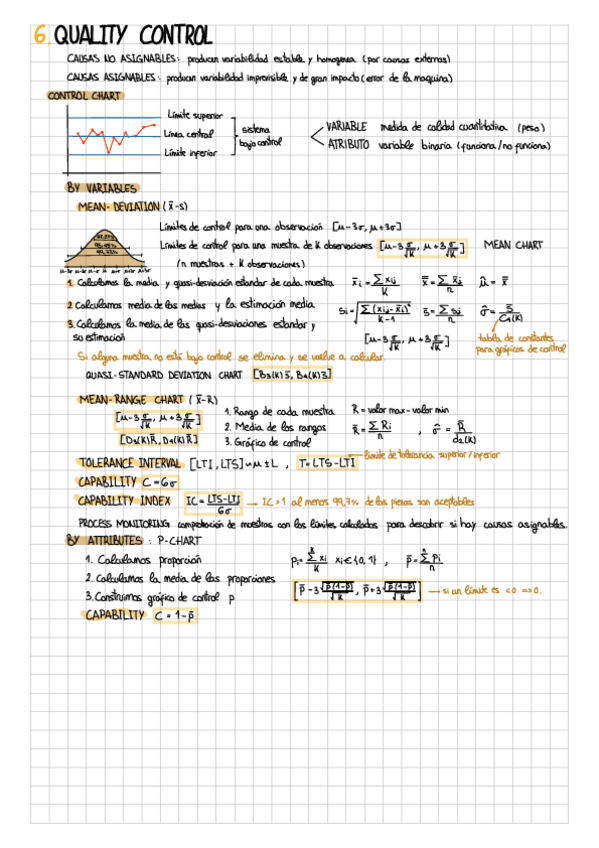 6. QUALITY CONTROL
CAUSAS NO ASIGNABLES: producen variabilidad estable y homogenea (por causas externas)
CAUSAS ASIGNABLES: producen variabilidad imprevisible y de gran impacto (error de la maquina)
CONTROL CHART
Límite superior
Línea central
Límite inferior
sistema
bajo control
VARIABLE medida de calidad cuantitativa (peso)
ATRIBUTO variable binaria (funciona/no funciona)
BY VARIABLES
MEAN-DEVIATION (x̄-s)
Límites de control para una observación [μ-3σ, μ+3σ]
Límites de control para una muestra de K observaciones [μ-3 σ/√K, μ+3 σ/√K] MEAN CHART
(n muestras + K observaciones)
1. Calculamos la media y quasi-desviación estandar de cada muestra x̄i = ∑xij/K x̿ = ∑x̄i/n μ̂ = x̿
2. Calculamos media de las medias y la estimación media Si = √(∑(xij-x̄i)²/(K-1)) s̄ = ∑si/n σ̂ = s̄/C4(K)
3. Calculamos la media de las quasi-desviaciones estandar y
su estimación [μ-3 σ/√K, μ+3 σ/√K]
tabla de constantes
para gráficos de control
Si alguna muestra no está bajo control se elimina y se vuelve a calcular.
QUASI-STANDARD DEVIATION CHART [B3(K)s̄, B4(K)s̄]
MEAN-RANGE CHART (x̄-R)
[μ-3 σ/√K, μ+3 σ/√K]
[D3(K)R̄, D4(K)R̄]
1. Rango de cada muestra R = valor max - valor min
2. Media de los rangos R̄ = ∑Ri/n , σ̂ = R̄/d2(K)
3. Gráfico de control
TOLERANCE INTERVAL [LTI, LTS] ∽ μ ± L , T = LTS-LTI
límite de tolerancia superior/inferior
CAPABILITY C = 6σ
CAPABILITY INDEX IC = LTS-LTI/6σ → IC>1 al menos 99,7% de las piezas son aceptables
PROCESS MONITORING comprobación de muestras con los límites calculados para descubrir si hay causas asignables.
BY ATTRIBUTES: P-CHART
1. Calculamos proporción pi = ∑xi/K xi∈{0,1} , p̄ = ∑pi/n
2. Calculamos la media de las proporciones
3. Construimos gráfico de control p [p̄-3 √(p̄(1-p̄))/√K, p̄+3 √(p̄(1-p̄))/√K] → si un límite es <0 ⇒ 0.
CAPABILITY C = 1-p̄